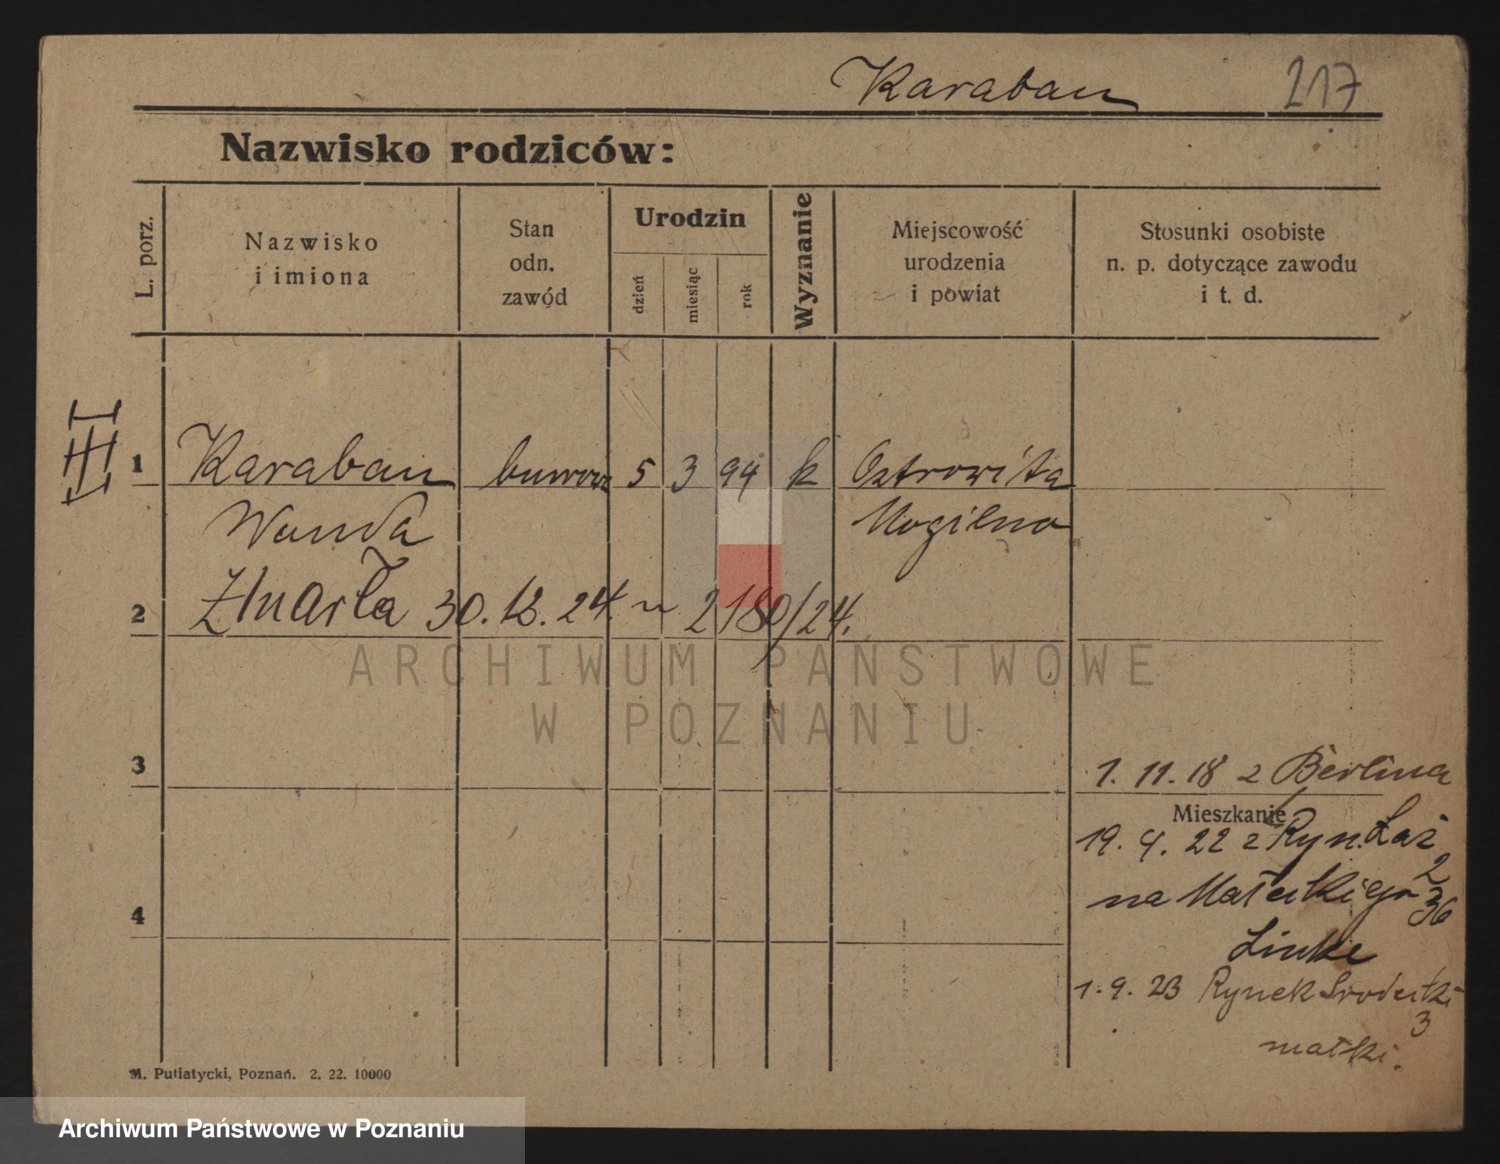 Karaban 217
Nazwisko rodziców:
L. porz.
Nazwisko
i imiona
Stan
odn.
zawód
Urodzin
dzień
miesiąc
rok
Wyznanie
Miejscowość
urodzenia
i powiat
Stosunki osobiste
n. p. dotyczące zawodu
i t. d.
III
1 Karaban 5 3 94 k Ostrowita
Wanda Mogilno
2 Zmarła 30.12.24. 2180/24.
ARCHIWUM PAŃSTWOWE
W POZNANIU
3
1.11.18 z Berlina
Mieszkanie
19.4.22 z Ryn. Łaz
2
na Małeckiego 36
Linke
4
1.9.23 Rynek Srodecki
3
matki.
M. Putiatycki, Poznań. 2. 22. 10000
Archiwum Państwowe w Poznaniu